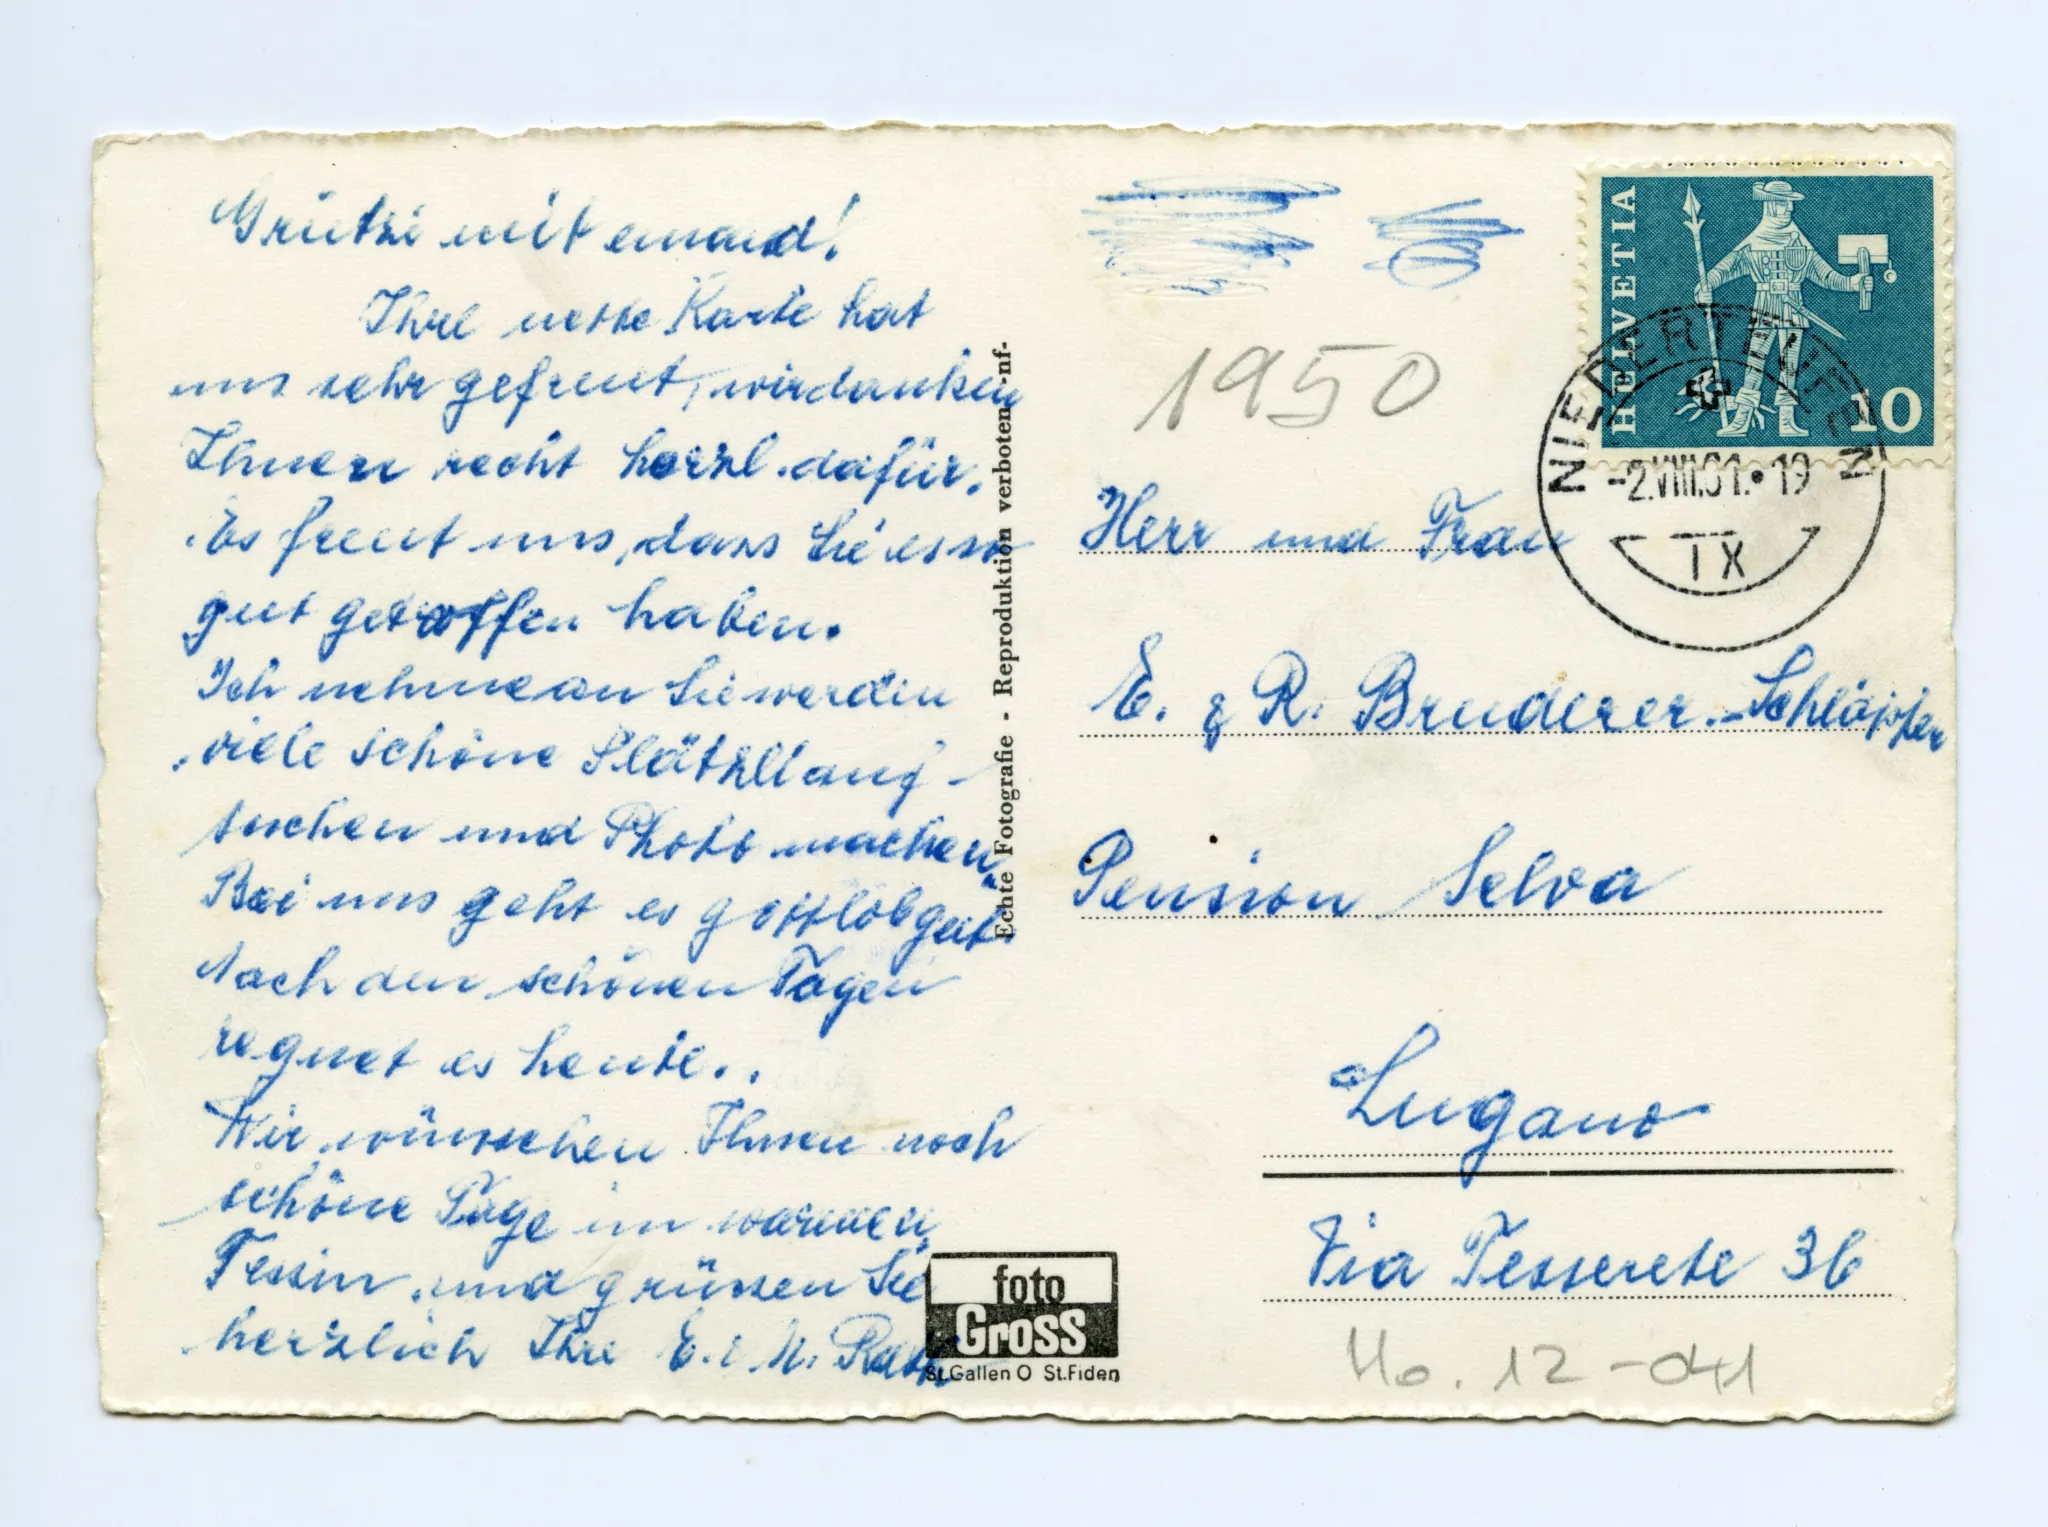 Grüetzi mit enand!
Ihre nette Karte hat
uns sehr gefreut, wir danken
Ihnen recht herzl. dafür.
Es freut uns, dass Sie es so
gut getroffen haben.
Ich nehme an Sie werden
viele schöne Plätzli auf-
suchen und Photo machen.
Bei uns geht es gottlob gut.
Nach den schönen Tagen
regnet es heute..
Wir wünschen Ihnen noch
schöne Tage im warmen
Tessin, und grüssen Sie
herzlich Ihre E. & N.
Echte Fotografie - Reproduktion verboten -nf-
foto
Gross
St.Gallen O St.Fiden
1950
HELVETIA
10
NIEDERTEUFEN
-2.VIII.61.•19
IX
Herr und Frau
E. & R. Bruderer-Schläpfer
Pension Selva
Lugano
Via Tesserete 36
Ho. 12-041